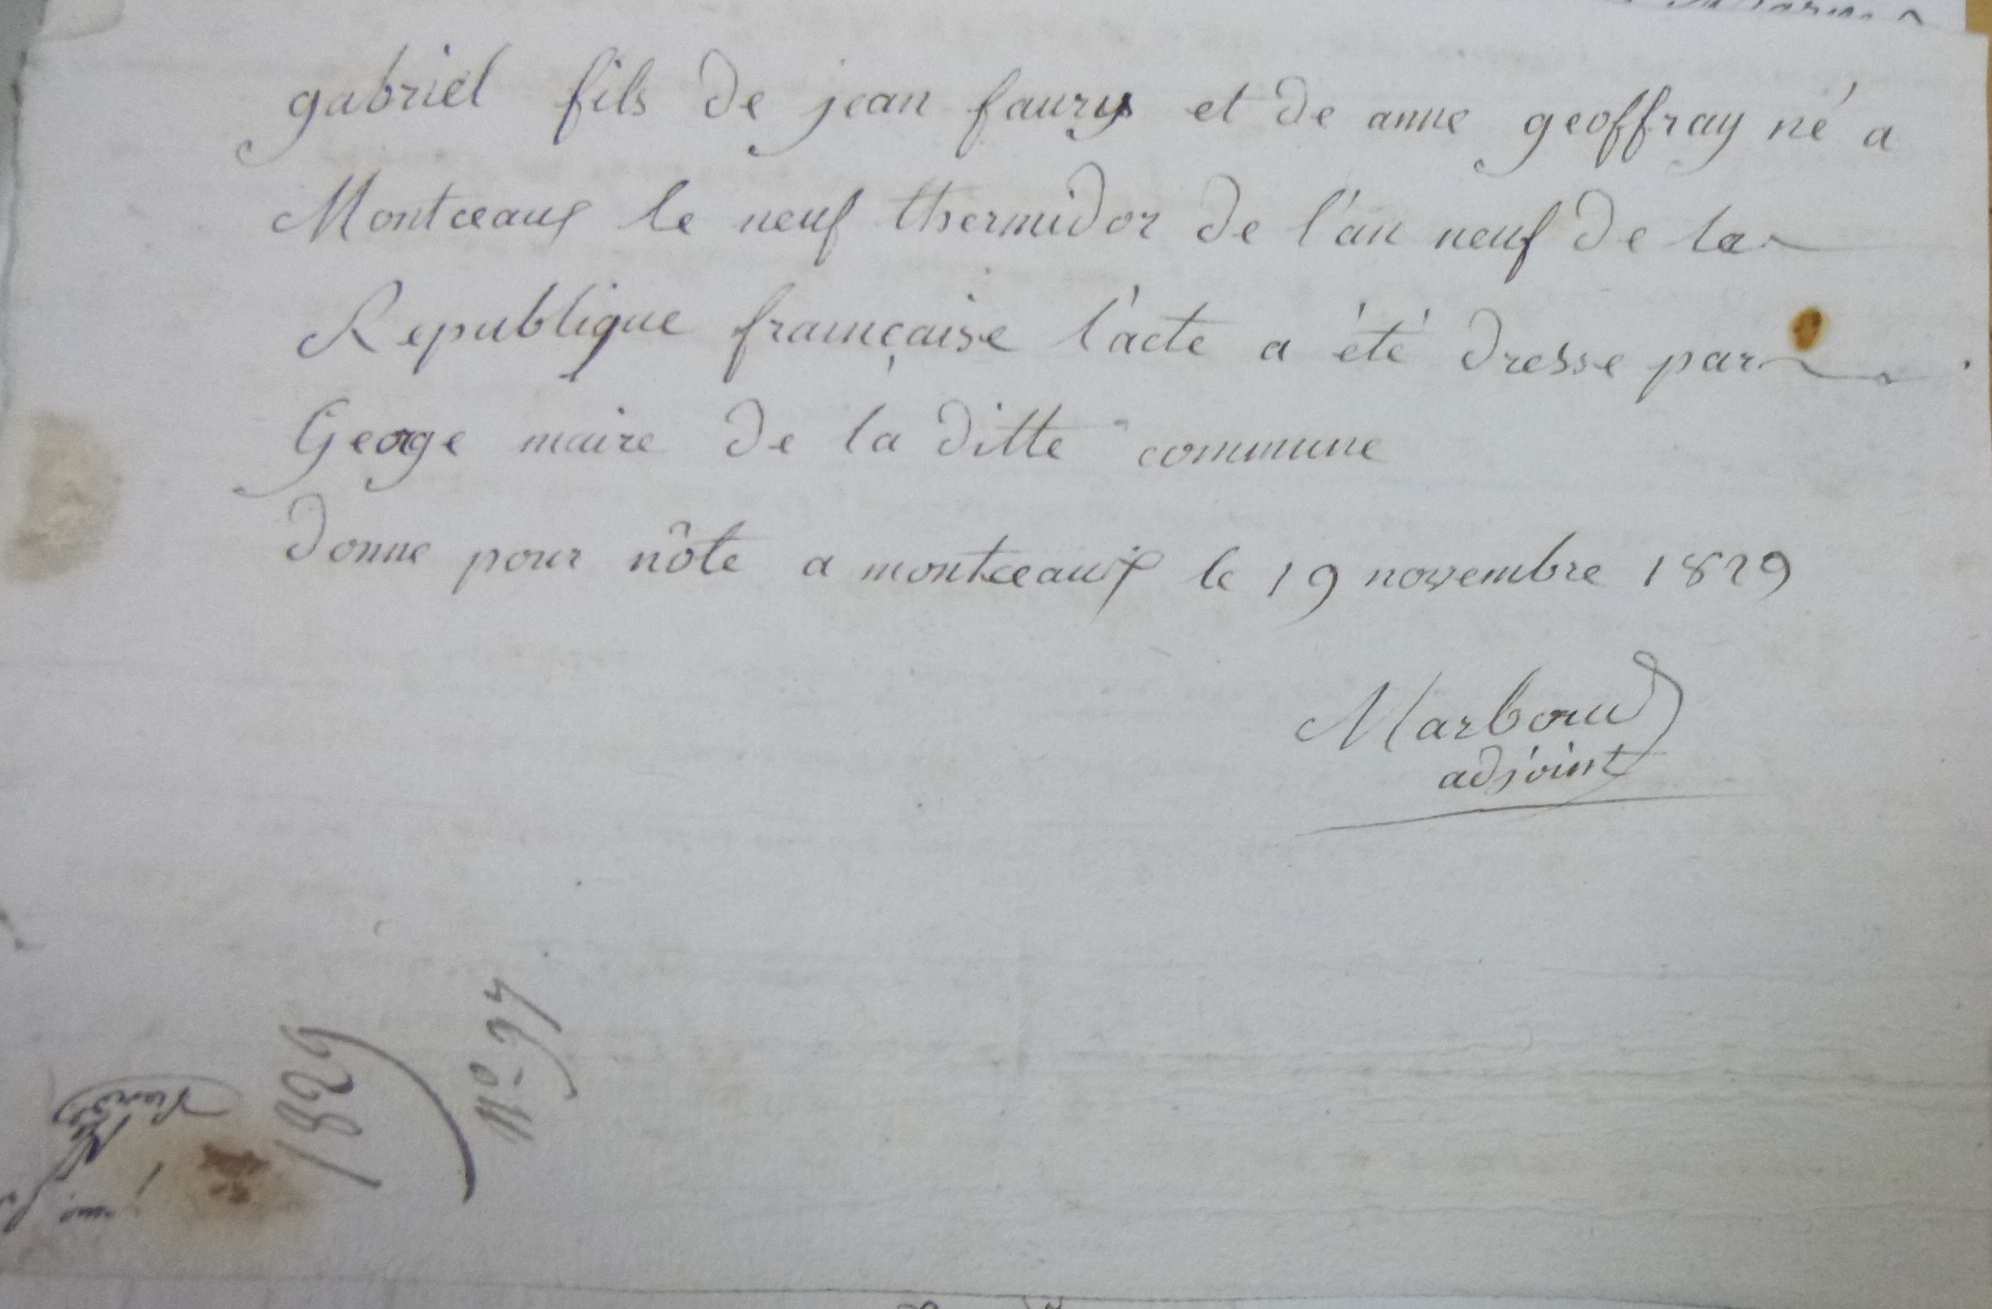 gabriel fils de jean faury et de anne geoffray né a
Montceaux le neuf thermidor de l'an neuf de la
Republique française l'acte a été dresse par
George maire de la ditte commune
donne pour nôte a montceaux le 19 novembre 1829
Marboud
adjoint
1829
n° 97